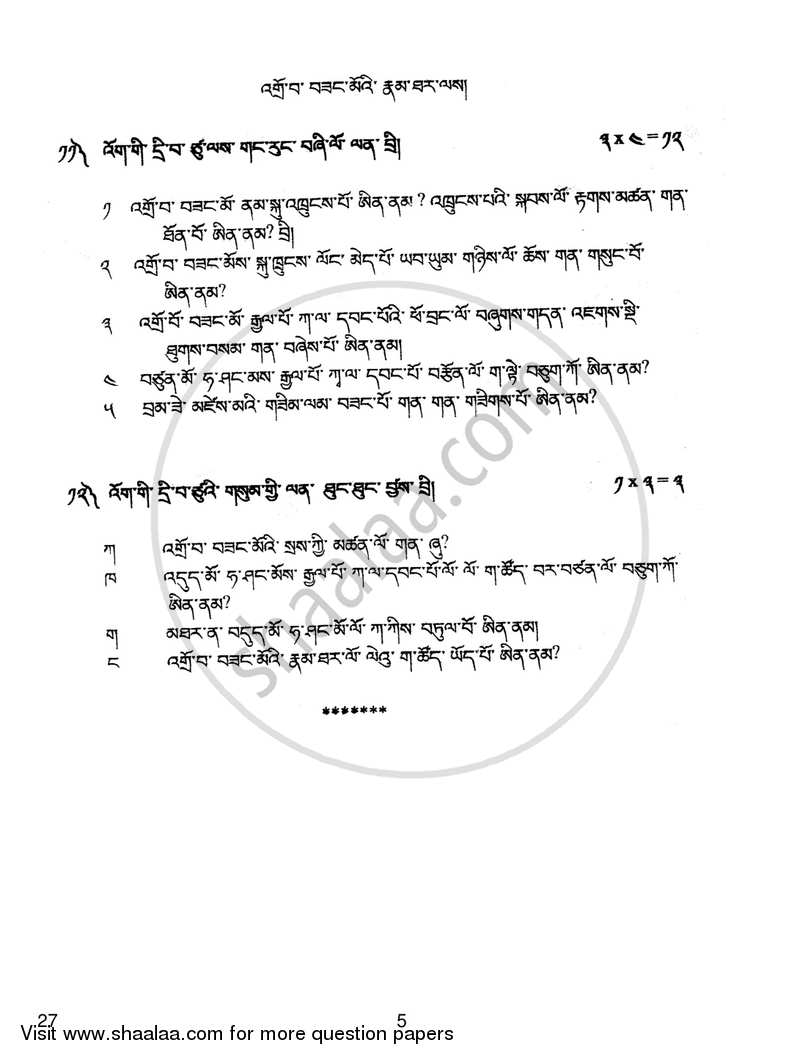 འགྲོ་བ་ བཟང་མོའི་ རྣམ་ཐར་ལས།
༡༡༽ འོག་གི་ དྲི་བ་ ཙུ་ལས་ གང་རུང་ བཞི་ལོ་ ལན་ བྲི། ༣ x ༤ = ༡༢
༡ འགྲོ་བ་ བཟང་མོ་ ནམ་སྐུ་འཁྲུངས་པོ་ ཨིན་ནམ ? འཁྲུངས་པའི་ སྐབས་ལོ་ རྟགས་མཚན་ གན་
ཐོན་པོ་ ཨིན་ནམ? བྲི།
༢ འགྲོ་བ་ བཟང་མོས་ སྐུ་ཁྲུངས་ ལོང་ མེད་པོ་ ཡབ་ཡུམ་ གཉིས་ལོ་ ཆོས་ གན་ གསུང་པོ་
ཨིན་ནམ?
༣ འགྲོ་པོ་ བཟང་མོ་ རྒྱལ་པོ་ ཀ་ལ་ དབང་པོའི་ ཕོ་བྲང་ལོ་ བཞུགས་གདན་ འཇགས་སྡེ་
ཐུགས་བསམ་ གན་ བཞེས་པོ་ ཨིན་ནམ།
༤ བཙུན་མོ་ ཧ་ཤང་མས་ རྒྱལ་པོ་ ཀ་ལ་ དབང་པོ་ བརྩོན་ལོ་ ག་ལྟེ་ བཅུག་ཀོ་ ཨིན་ནམ?
༥ བྲམ་ཟེ་ མཛེས་མའི་ གཟིམ་ལམ་ བཟང་པོ་ གན་ གན་ གཟིགས་པོ་ ཨིན་ནམ?
༡༢༽ འོག་གི་ དྲི་བ་ཙུའི་ གསུམ་གྱི་ ལན་ ཐུང་ཐུང་ བྱས་ བྲི། ༡ x ༣ = ༣
ཀ འགྲོ་བ་ བཟང་མོའི་ སྲས་ཀྱི་ མཚན་ལོ་ གན་ ཞུ?
ཁ འདུད་མོ་ ཧ་ཤང་མོས་ རྒྱལ་པོ་ ཀ་ལ་དབང་པོ་ལོ་ ལོ་ ག་ཚོད་ བར་བཙན་ལོ་ བཅུག་ཀོ་
ཨིན་ནམ?
ག མཐར་ན་ བདུད་མོ་ ཧ་ཤང་མོ་ལོ་ ཀ་ཀིས་ བཏུལ་བོ་ ཨིན་ནམ།
ང འགྲོ་བ་ བཟང་མོའི་ རྣམ་ཐར་ལོ་ ལེའུ་ ག་ཚོད་ ཡོད་པོ་ ཨིན་ནམ?
*******
shaalaa.com
27 5
Visit www.shaalaa.com for more question papers